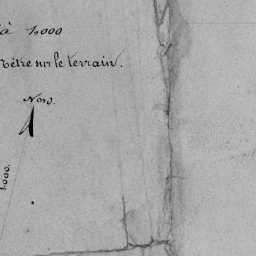 à 1,000
Mètre sur le terrain.
Nord.
1,000.